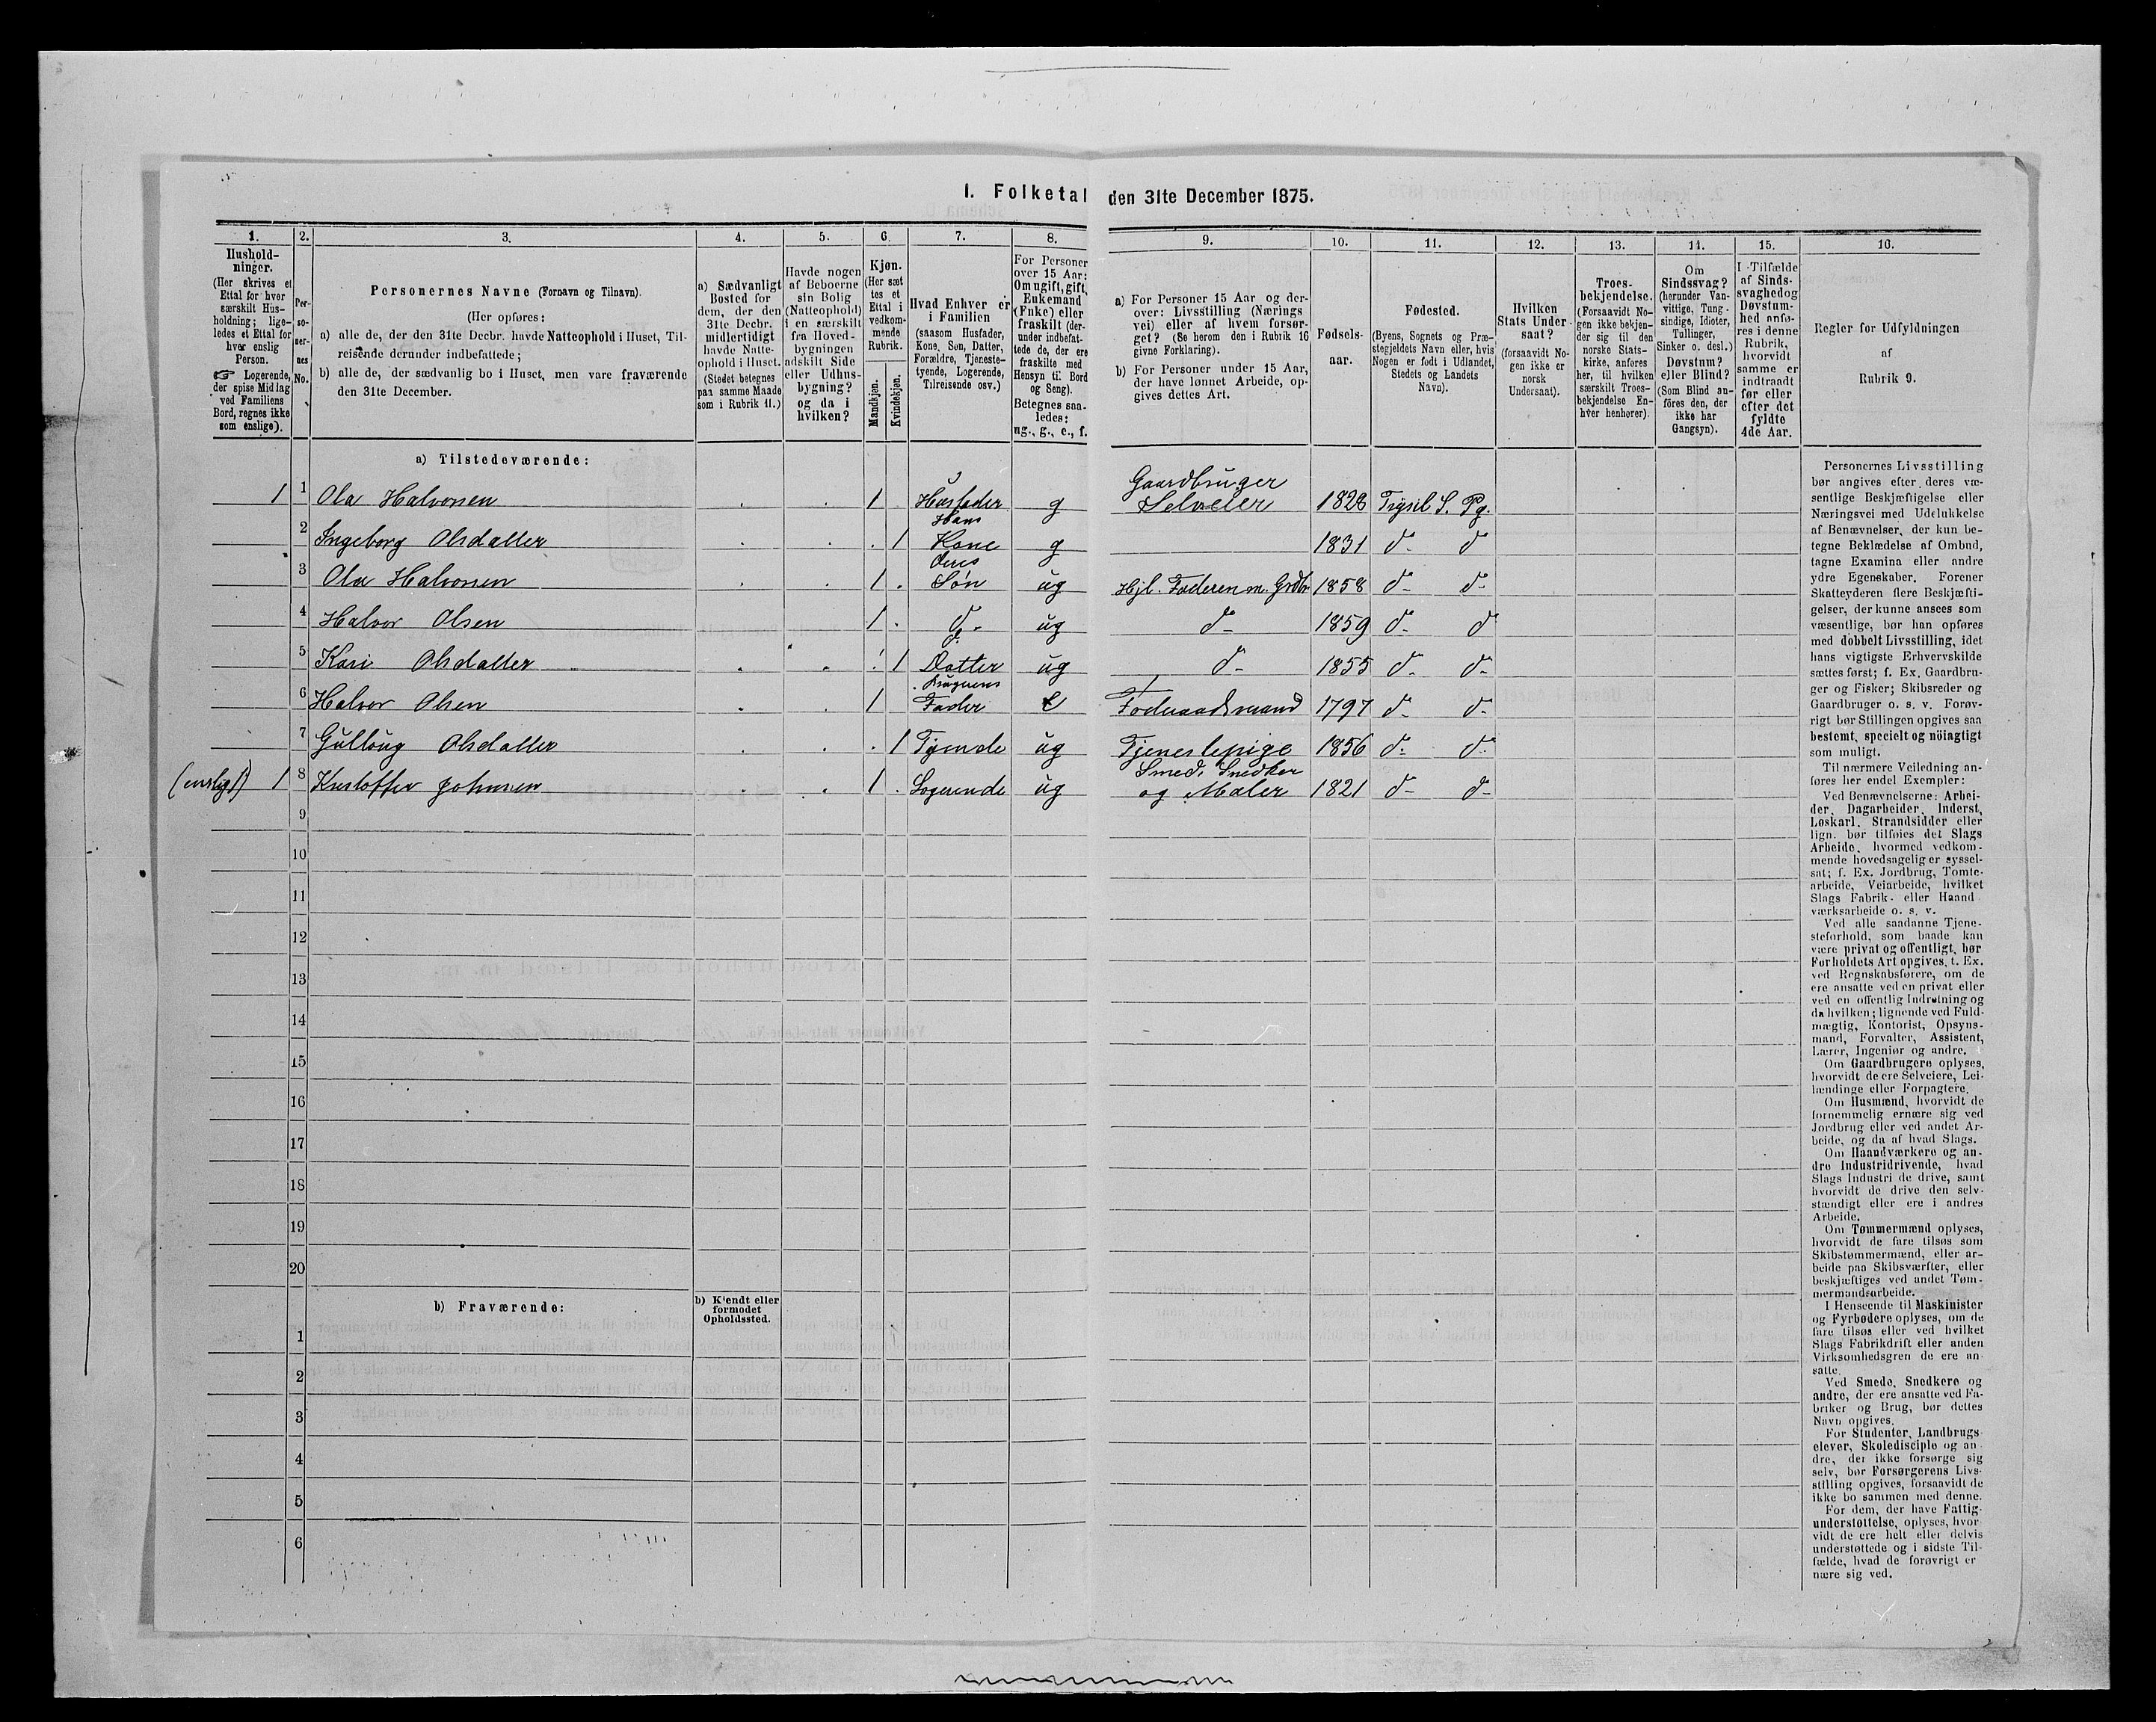 I. Folketal den 31te December 1875.
1.
Hushold-
ninger.
(Her skrives et
Ettal for hver
særskilt Hus-
holdning; lige-
ledes et Ettal for
hver enslig
Person.
☞ Logerende,
der spise Middag
ved Familiens
Bord, regnes ikke
som enslige).
2.
Per-
so-
ner-
nes
No.
3.
Personernes Navne (Fornavn og Tilnavn).
(Her opføres:
a) alle de, der den 31te Decbr. havde Natteophold i Huset, Til-
reisende derunder indbefattede;
b) alle de, der sædvanlig bo i Huset, men vare fraværende
den 31te December.
4.
a) Sædvanligt
Bosted for
dem, der den
31te Decbr.
midlertidigt
havde Natte-
ophold i Huset.
(Stedet betegnes
paa samme Maade
som i Rubrik 11.)
5.
Havde nogen
af Beboerne
sin Bolig
(Natteophold)
i en særskilt
fra Hoved-
bygningen
adskilt Side
eller Udhus-
bygning?
og da i
hvilken?
6.
Kjøn.
(Her sæt
tes et
Ettal i
vedkom-
mende
Rubrik.
Mandkjøn.
Kvindekjøn.
7.
Hvad Enhver er
i Familien
(saasom Husfader,
Kone, Søn, Datter,
Forældre, Tjeneste-
tyende, Logerende,
Tilreisende osv.)
8.
For Personer
over 15 Aar:
Om ugift, gift,
Enkemand
(Enke) eller
fraskilt (der-
under indbefat-
tede de, der ere
fraskilte med
Hensyn til Bord
og Seng).
Betegnes saa-
ledes:
ug., g., e., f.
9.
a) For Personer 15 Aar og der-
over: Livsstilling (Nærings
vei) eller af hvem forsør-
get? (Se herom den i Rubrik 16
givne Forklaring).
b) For Personer under 15 Aar,
der have lønnet Arbeide, op-
gives dettes Art.
10.
Fødsels-
aar.
11.
Fødested.
(Byens, Sognets og Præ-
stegjeldets Navn eller, hvis
Nogen er født i Udlandet,
Stedets og Landets
Navn).
12.
Hvilken
Stats Under-
saat?
(forsaavidt No-
gen ikke er
norsk
Undersaat).
13.
Troes-
bekjendelse.
(Forsaavidt No-
gen ikke bekjen-
der sig til den
norske Stats-
kirke, anføres
her, til hvilken
særskilt Troes-
bekjendelse En-
hver henhører).
14.
Om
Sindssvag?
(herunder Van-
vittige, Tung-
sindige, Idioter,
Tullinger,
Sinker o. desl.)
Døvstum?
eller Blind?
(Som Blind an-
føres den, der
ikke har
Gangsyn).
15.
I Tilfælde
af Sinds-
svaghed og
Døvstum-
hed anfø-
res i denne
Rubrik,
hvorvidt
samme er
indtraadt
før eller
efter det
fyldte
4de Aar.
16.
Regler for Udfyldningen
af
Rubrik 9.
a) Tilstedeværende:
1 1 Ola Halvorsen 1 Husfader g Gaardbruger Selveier 1828 Trysil S. Pg.
2 Ingeborg Olsdatter 1 Hans Kone g 1831 d- d
3 Ola Halvorsen 1 deres Søn ug Hjl. Faderen m. Grdbr 1858 d- d-
4 Halvor Olsen 1 d- ug d- 1859 d- d
5 Kari Olsdatter 1 d. Datter ug d- 1855 d- d-
6 Halvor Olsen 1 Brugerens Fader e Føderaadsmand 1797 d- d-
7 Gulloug Olsdatter 1 Tyende ug Tjenestepige 1856 d- d-
(enslig) 1 8 Kristoffer Johnsen 1 Logerende ug Smed, Snedker og Maler 1821 d- d-
9
10
11
12
13
14
15
16
17
18
19
20
b) Fraværende:
b) Kjendt eller
formodet
Opholdssted.
1
2
3
4
5
6
Personernes Livsstilling
bør angives efter deres væ-
sentlige Beskjæftigelse eller
Næringsvei med Udelukkelse
af Benævnelser, der kun be-
tegne Beklædelse af Ombud,
tagne Examina eller andre
ydre Egenskaber. Forener
Skatteyderen flere Beskjæfti-
gelser, der kunne ansees som
væsentlige, bør han opføres
med dobbelt Livsstilling, idet
hans vigtigste Erhvervskilde
sættes først; f. Ex. Gaardbru-
ger og Fisker; Skibsreder og
Gaardbruger o. s. v. Forøv-
rigt bør Stillingen opgives saa
bestemt, specielt og nöiagtigt
som muligt.
Til nærmere Veiledning an-
føres her endel Exempler:
Ved Benævnelserne: Arbei-
der, Dagarbeider, Inderst,
Løskarl, Strandsidder eller
lign. bør tilføies det Slags
Arbeide, hvormed vedkom-
mende hovedsagelig er syssel-
sat; f. Ex. Jordbrug, Tomte-
arbeide, Veiarbeide, hvilket
Slags Fabrik- eller Haand
værksarbeide o. s. v.
Ved alle saadanne Tjene-
steforhold, som baade kan
være privat og offentligt, bør
Forholdets Art opgives, t. Ex.
ved Regnskabsførere, om de
ere ansatte ved en privat eller
ved en offentlig Indretning og
da hvilken; lignende ved Fuld-
mægtig, Kontorist, Opsyns-
mand, Forvalter, Assistent,
Lærer, Ingeniør og andre.
Om Gaardbrugere oplyses,
hvorvidt de ere Selveiere, Lei-
lændinge eller Forpagtere.
Om Husmænd, hvorvidt de
fornemmelig ernære sig ved
Jordbrug eller ved andet Ar-
beide, og da af hvad Slags.
Om Haandværkere og an-
dre Industridrivende, hvad
Slags Industri de drive, samt
hvorvidt de drive den selv-
stændigt eller ere i andres
Arbeide.
Om Tømmermænd oplyses,
hvorvidt de fare tilsøs som
Skibstømmermænd, eller ar-
beide paa Skibsværfter, eller
beskjæftiges ved andet Tøm-
mermandsarbeide.
I Henseende til Maskinister
og Fyrbødere oplyses, om de
fare tilsøs eller ved hvilket
Slags Fabrikdrift eller anden
Virksomhedsgren de ere an-
satte.
Ved Smede, Snedkere og
andre, der ere ansatte ved Fa-
briker og Brug, bør dettes
Navn opgives.
For Studenter, Landbrugs
elever, Skoledisciple og an
dre, der ikke forsørge sig
selv, bør Forsørgerens Livs-
stilling opgives, forsaavidt de
ikke bo sammen med denne.
For dem, der have Fattig-
understøttelse, oplyses, hvor
vidt de ere helt eller delvis
understøttede og i sidste Til-
fælde, hvad de forøvrigt er
nære sig ved.